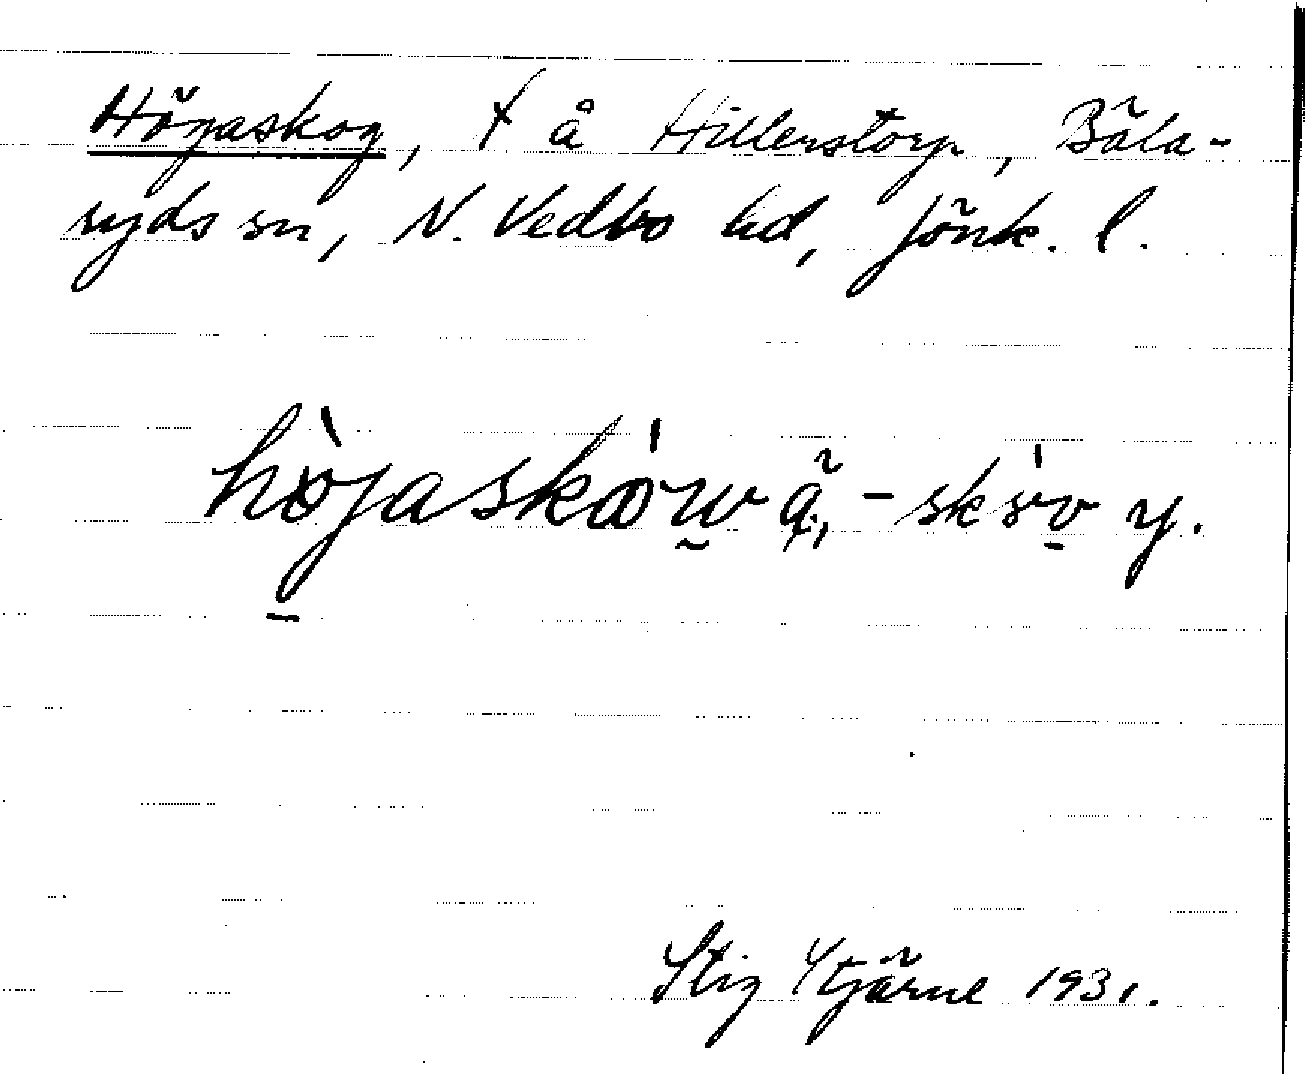 Högaskog, t å Hillerstorp, Bäla-
ryds sn, N. Vedbo hd, Jönk. l.
höjaskow ä, -skov y.
Stig Ytjärne 1931.